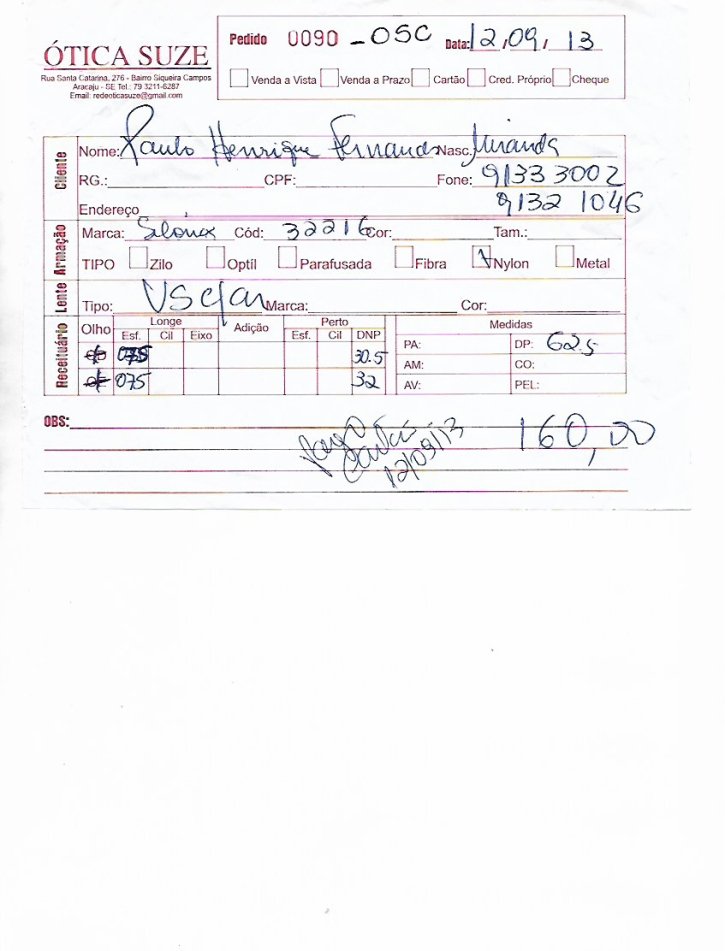 ÓTICA SUZE
Rua Santa Catarina, 276 - Bairro Siqueira Campos
Aracaju - SE Tel.: 79 3211-6287
Email: redeoticasuze@gmail.com
Pedido 0090 - OSC Data: 12,09, 13
Venda a Vista Venda a Prazo Cartão Cred. Próprio Cheque
Cliente
Nome: Paulo Henrique Fernandes Nasc. Miranda
RG.: CPF: Fone: 9133 3002
Endereço 9132 1046
Armação
Marca: Cód: 32216 Cor: Tam.:
TIPO Zilo Optíl Parafusada Fibra Nylon Metal
Lente
Tipo: Marca: Cor:
Receituário
Olho Longe Adição Perto Medidas
Esf. Cil Eixo Esf. Cil DNP
075 30.5 PA: DP: 62.5
AM: CO:
075 32 AV: PEL:
OBS: 160,00
pago
cartão
12/09/13